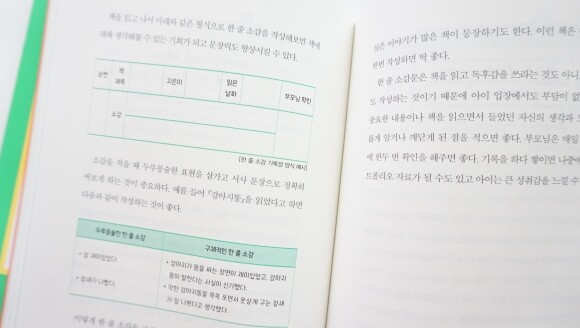 책을 읽고 나서 아래와 같은 형식으로 한 줄 소감을 작성해보면 책에
대해 생각해볼 수 있는 기회가 되고 문장력도 향상시킬 수 있다.
순번 책 제목 지은이 읽은 날짜 부모님 확인
소감
[한 줄 소감 기록장 양식 예시]
소감을 적을 때 두루뭉술한 표현을 삼가고 서사 문장으로 정확히
써보게 하는 것이 중요하다. 예를 들어 『강아지똥』을 읽었다고 하면
다음과 같이 작성하는 것이 좋다.
두루뭉술한 한 줄 소감 구체적인 한 줄 소감
• 참 재미있었다.
• 강아지가 똥을 싸는 장면이 재미있었고, 강아지
똥이 말한다는 사실이 신기했다.
• 참새가 나빴다.
• 착한 강아지똥을 콕콕 쪼면서 못살게 구는 참새
가 참 나쁘다고 생각했다.
이렇게 한 줄 소감을
싶은 이야기가 많은 책이 등장하기도 한다. 이런 책은
한번 작성하면 딱 좋다.
한 줄 소감문은 책을 읽고 독후감을 쓰라는 것도 아니
도 작성하는 것이기 때문에 아이 입장에서도 부담이 없
중요한 내용이나 책을 읽으면서 들었던 자신의 생각과
롭게 알거나 깨닫게 된 점을 적으면 좋다. 부모님은 매일
에 한두 번 확인을 해주면 좋다. 기록을 하다 쌓이면 나중에
트폴리오 자료가 될 수도 있고 아이는 큰 성취감을 느낄 수